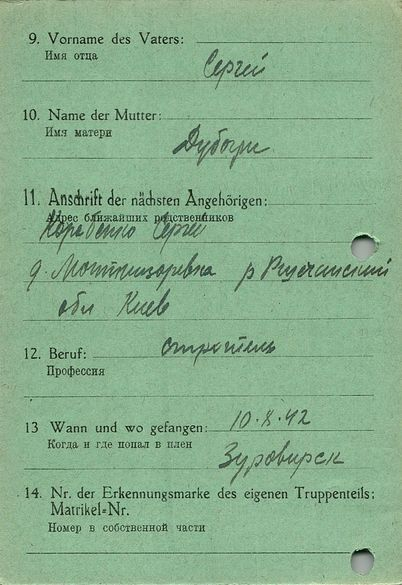 9. Vorname des Vaters:
Имя отца
Сергей
10. Name der Mutter:
Имя матери
11. Anschrift der nächsten Angehörigen:
Адрес ближайших родственников
Сергей
д. р
обл Киев
12. Beruf: строитель
Профессия
13 Wann und wo gefangen: 10.8.42
Когда и где попал в плен
14. Nr. der Erkennungsmarke des eigenen Truppenteils:
Matrikel-Nr.
Номер в собственной части